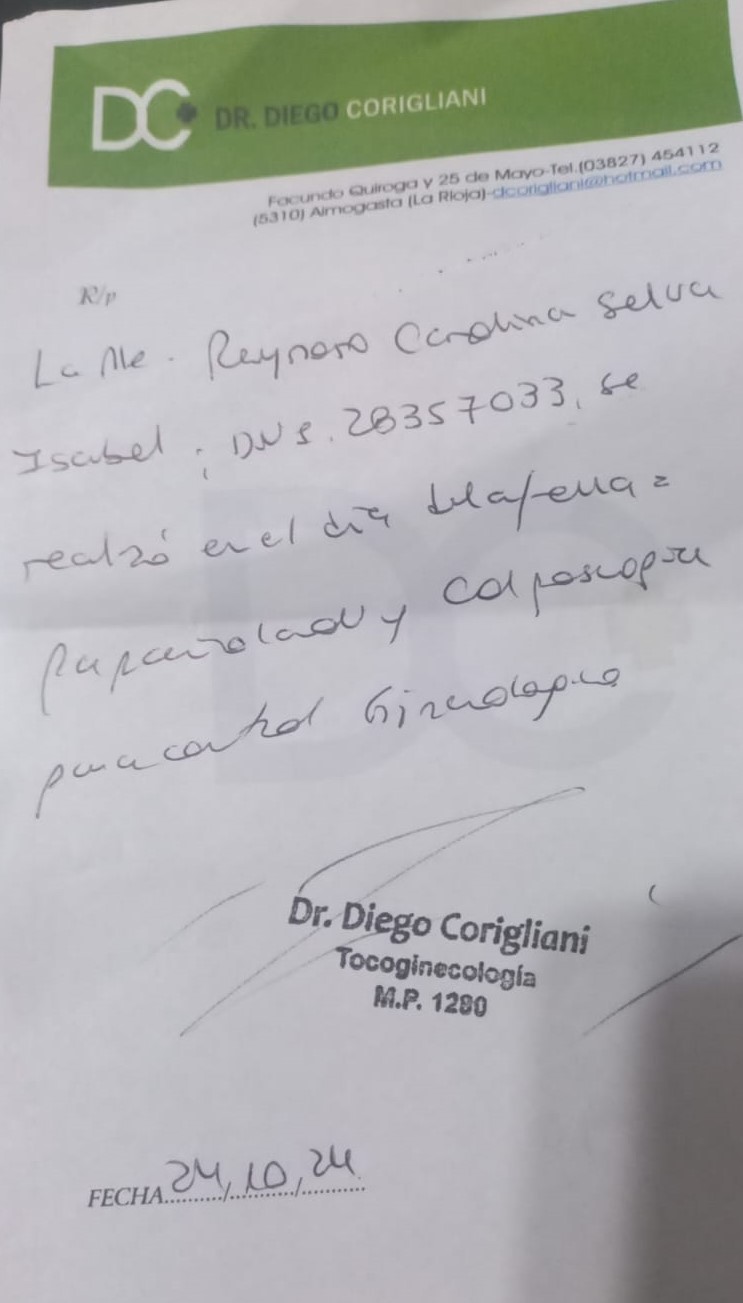 DC
DR. DIEGO CORIGLIANI
Facundo Quiroga y 25 de Mayo-Tel.(03827) 454112
(5310) Aimogasta (La Rioja)-dcorigliani@hotmail.com
R/p
La Pte. Reynoso Carolina Selva
Isabel; DNI. 28357033, se
realizó en el día de la fecha =
Papanicolaou y Colposcopia
para control Ginecologico
Dr. Diego Corigliani
Tocoginecología
M.P. 1280
FECHA 24/10/24